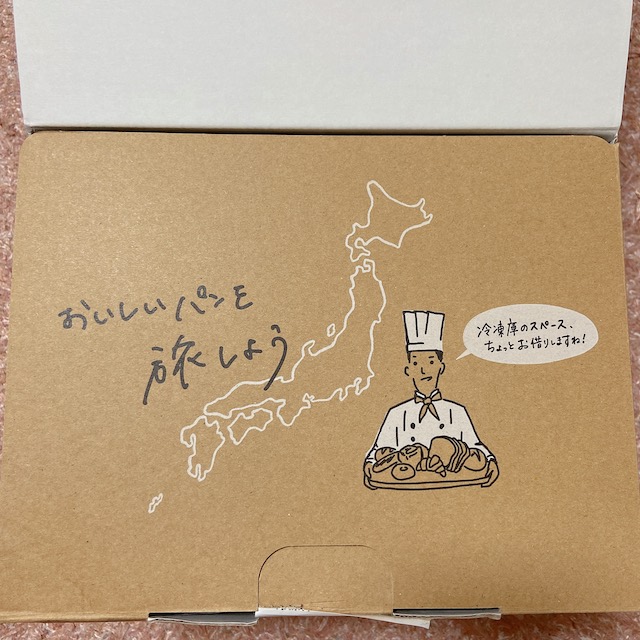 おいしいパンを
旅しよう
冷凍庫のスペース、
ちょっとお借りしますね!